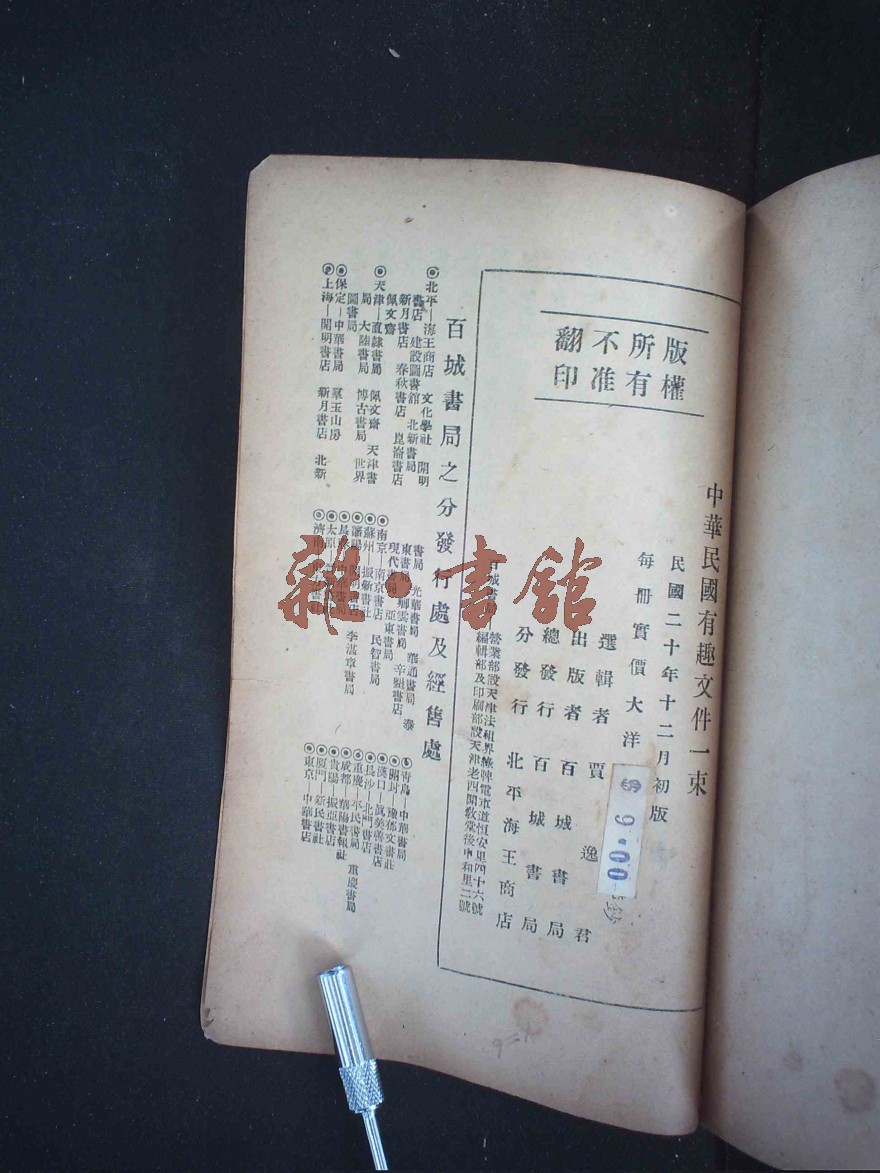 中華民國有趣文件一束
民國二十年十二月初版
每冊實價大洋
$9.00
選輯者 賈逸君
出版者 百城書局
總發行 百城書局
分發行 北平海王商店
營業部設天津法租界
電車道恒安里四十六號
編輯部及印刷部設天津老西開教堂後中和里二號
版權所有
翻印不准
百城書局之分發行處及經售處
◉北平—海王商店 文化學社 開明
書店 建設圖書館 北新書局
新月書店 春秋書店 崑崙書店
佩文齋
◉天津—直隸書局 佩文齋 天津書
局 大陸書局 博古書局 世界
圖書局
◉保定—中華書局 羣玉山房
◉上海—開明書店 新月書店 北新
書局 光華書局 華通書局 泰
東書局 卿雲書局 辛墾書店
現代書局 亞東書局
◉南京—南京書店 民智書局
◉蘇州—振新書社
◉瀋陽 李湛章書局
◉太原
◉濟南
◉青島—中華書局
◉開封—豫郁文書莊
◉漢口—眞美善書店
◉長沙—北門書店
◉重慶—平民書局 重慶書局
◉成都—華陽書報社
◉貴陽—振亞書店
◉厦門—新民書社
◉東京—中華書店
雜·書館
9=1